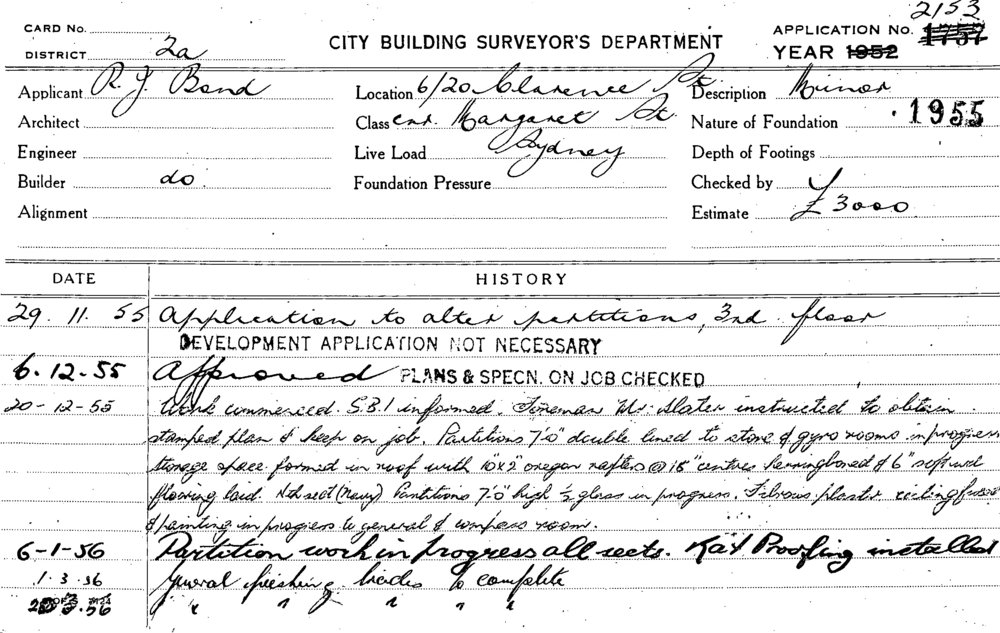 2153
CARD No. APPLICATION No. 1757
DISTRICT 2a CITY BUILDING SURVEYOR'S DEPARTMENT YEAR 1952
Applicant R. J. Bond Location 6/20 Clarence St. Description Minor
Architect Class cnr. Margaret St. Nature of Foundation 1955
Engineer Live Load Sydney Depth of Footings
Builder do Foundation Pressure Checked by
Alignment Estimate £3000
DATE HISTORY
29. 11. 55 Application to alter partitions, 3rd. floor
DEVELOPMENT APPLICATION NOT NECESSARY
6-12-55 Approved PLANS & SPECN. ON JOB CHECKED
20-12-55 Work commenced. S.B.I informed. Foreman Mr. Slater instructed to obtain
stamped plan & keep on job. Partitions 7'0" double lined to store & gyro rooms in progress
storage space formed in roof with 10"x2" oregon rafters @ 18" centres herringboned & 6" softwd
flooring laid. Nth sect (Navy) Partitions 7'0" high ½ glass in progress. Fibrous plaster ceiling
& painting in progress to general & compass room.
6-1-56 Partition work in progress all sects. Rat Proofing installed
1. 3. 56 General finishing to complete
3. 56 " " " " "